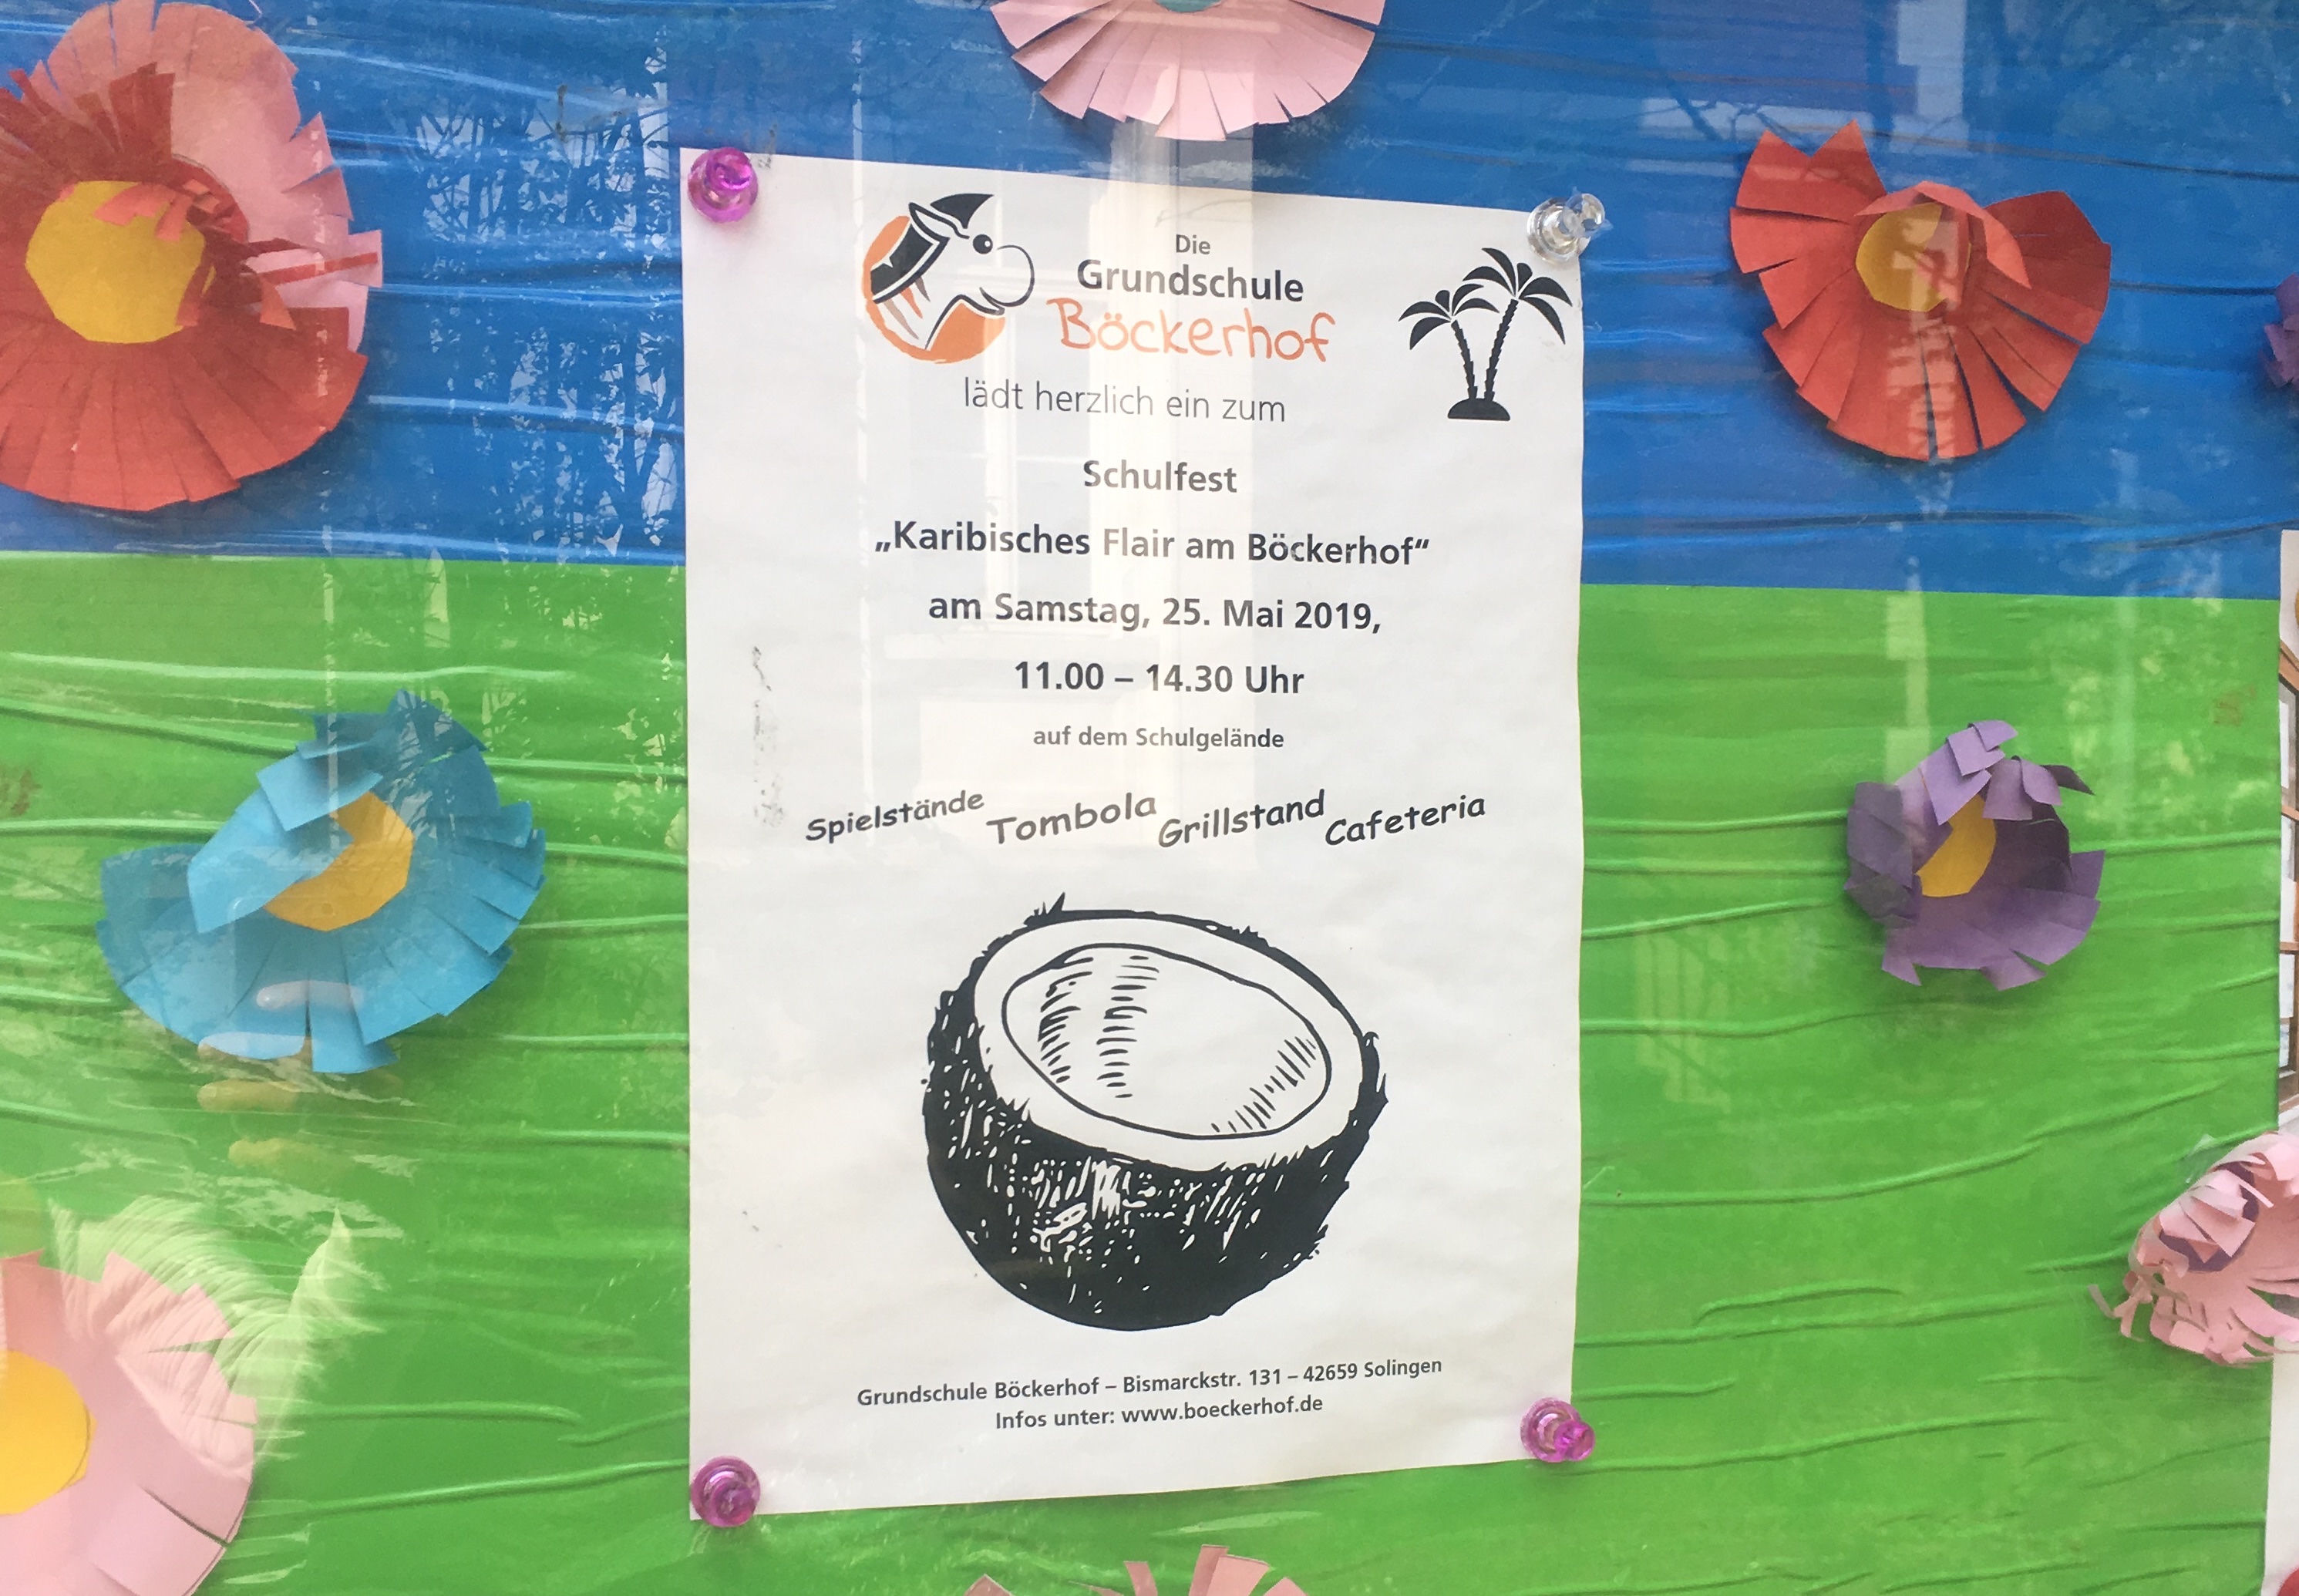 Die
Grundschule
Böckerhof
lädt herzlich ein zum
Schulfest
„Karibisches Flair am Böckerhof“
am Samstag, 25. Mai 2019,
11.00 – 14.30 Uhr
auf dem Schulgelände
Spielstände Tombola Grillstand Cafeteria
Grundschule Böckerhof – Bismarckstr. 131 – 42659 Solingen
Infos unter: www.boeckerhof.de